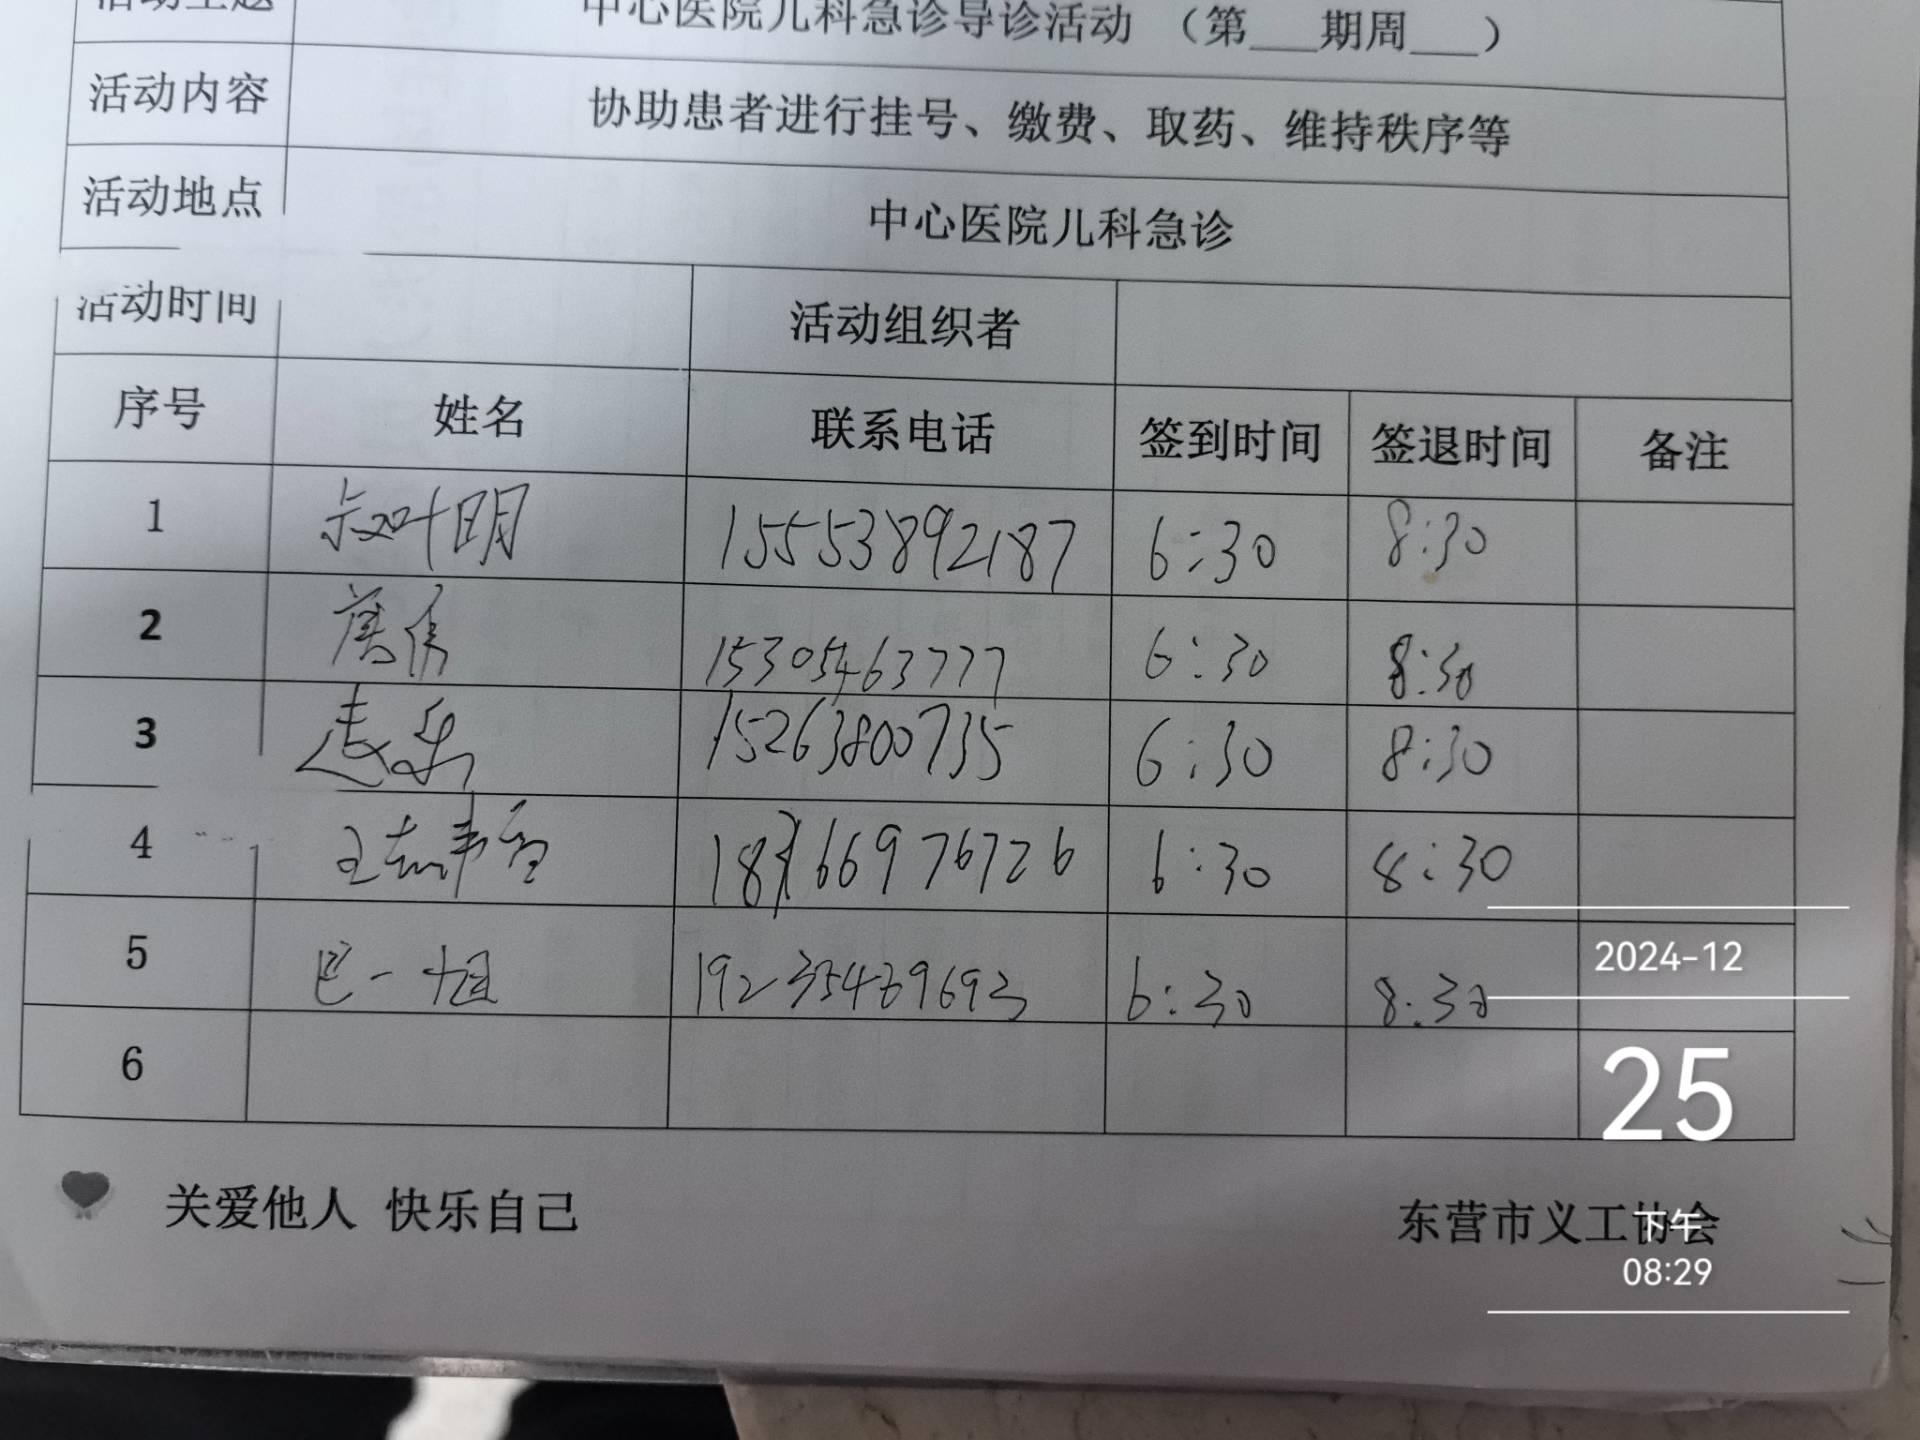 活动主题 中心医院儿科急诊导诊活动 （第___期周___）
活动内容 协助患者进行挂号、缴费、取药、维持秩序等
活动地点 中心医院儿科急诊
活动时间 活动组织者
序号 姓名 联系电话 签到时间 签退时间 备注
1 叶明 15553892187 6:30 8:30
2 15305463777 6:30 8:30
3 15263800735 6:30 8:30
4 王 6:30 8:30
5 巴一 6:30 8:30
6
2024-12
25
关爱他人 快乐自己 东营市义工协会
下午
08:29